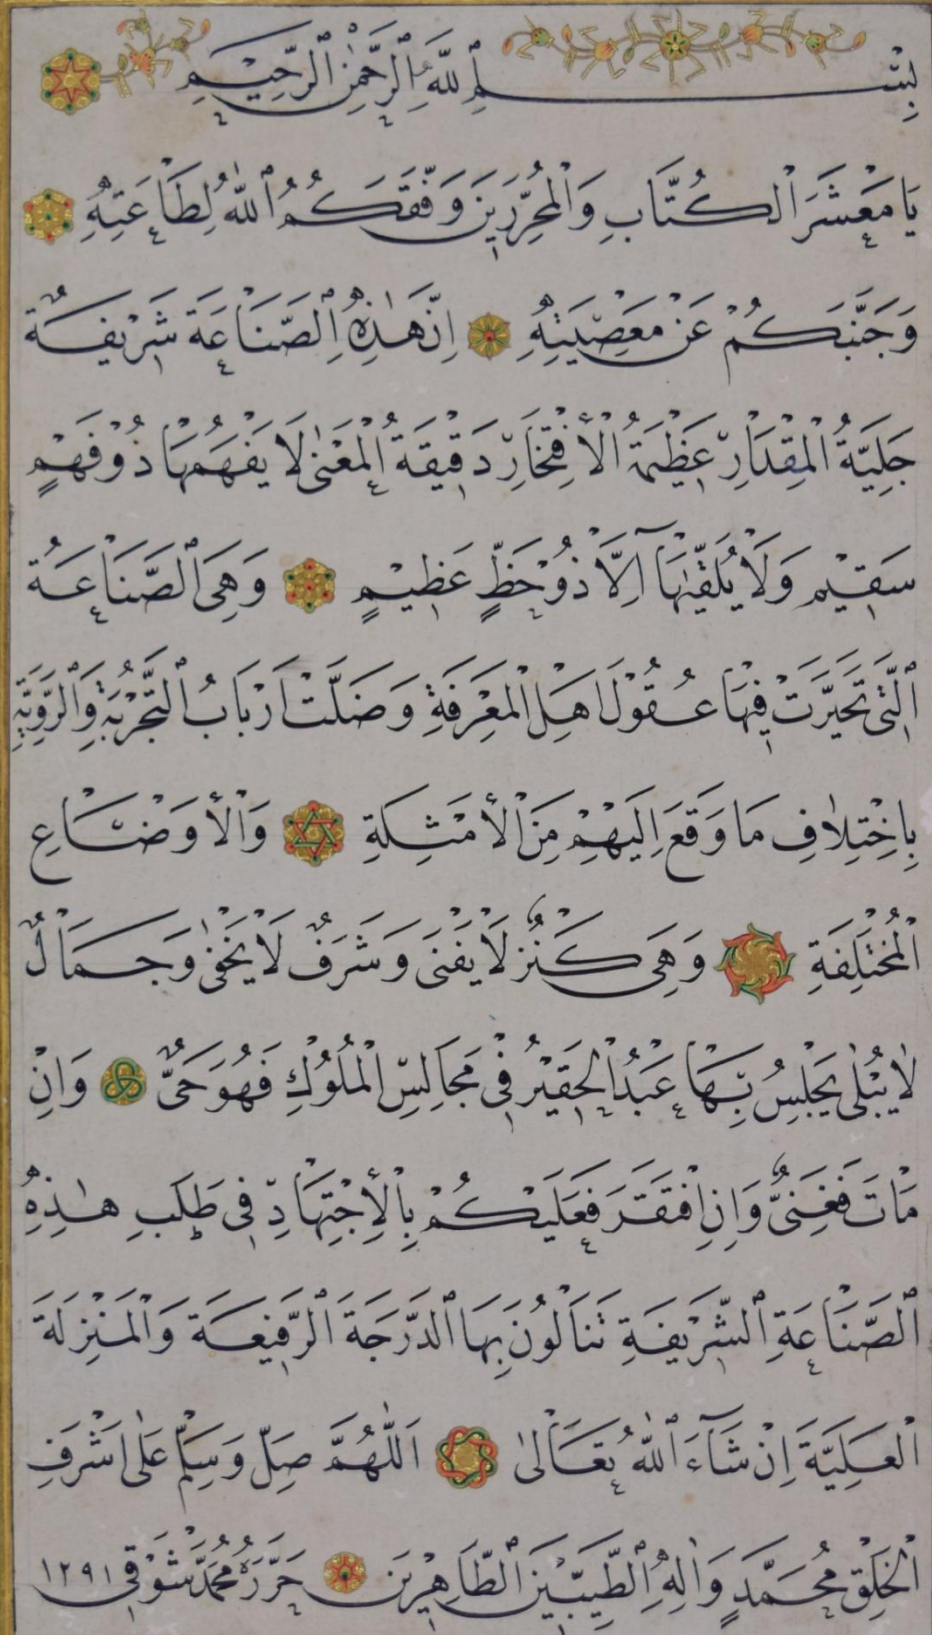 بِسْمِ ٱللّٰهِ ٱلرَّحْمٰنِ ٱلرَّحِيْمِ
يَا مَعْشَرَ الْكُتَّابِ وَالْمُحَرِّرِيْنَ وَفَّقَكُمُ ٱللّٰهُ لِطَاعَتِهٖ
وَجَنَّبَكُمْ عَنْ مَعْصِيَتِهٖ اِنَّ هٰذِهِ ٱلصَّنَاعَةَ شَرِيْفَةٌ
جَلِيَّةُ الْمِقْدَارِ عَظِيْمَةُ الْأِفْتِخَارِ دَقِيْقَةُ الْمَعْنٰى لَا يَفْهَمُهَا ذُوْ فَهْمٍ
سَقِيْمٍ وَلَا يُلَقّٰيهَآ اِلَّا ذُوْ حَظٍّ عَظِيْمٍ وَهِىَ ٱلصَّنَاعَةُ
ٱلَّتِى تَحَيَّرَتْ فِيْهَا عُقُوْلَ اَهْلِ الْمَعْرِفَةِ وَضَلَّتْ اَرْبَابُ ٱلتَّجْرُبَةِ وَٱلرَّوِيَّةِ
بِاخْتِلَافِ مَا وَقَعَ اِلَيْهِمْ مِنَ الْأَمْثِلَةِ وَالْأَوْضَاعِ
الْمُخْتَلِفَةِ وَهِىَ كَنْزٌ لَا يَفْنَى وَشَرَفٌ لَا يَخْفٰى وَجَمَالٌ
لَا يُبْلٰى يَجْلِسُ بِهَا عَبْدُ الْحَقِيْرُ فِىْ مَجَالِسِ الْمُلُوْكِ فَهُوَ حَىٌّ وَاِنْ
مَاتَ فَغَنِىٌّ وَاِنِ افْتَقَرَ فَعَلَيْكُمْ بِالْأِجْتِهَادِ فِى طَلَبِ هٰذِهِ
ٱلصَّنَاعَةِ ٱلشَّرِيْفَةِ تَنَالُوْنَ بِهَا ٱلدَّرَجَةَ ٱلرَّفِيْعَةَ وَالْمَنْزِلَةَ
الْعَلِيَّةَ اِنْ شَآءَ ٱللّٰهُ تَعَالٰى اَللّٰهُمَّ صَلِّ وَسَلِّمْ عَلٰى اَشْرَفِ
الْخَلْقِ مُحَمَّدٍ وَاٰلِهِ ٱلطَّيِّبِيْنَ ٱلطَّاهِرِيْنَ حَرَّرَهُ مُحَمَّد شَوْقِى ١٢٩١